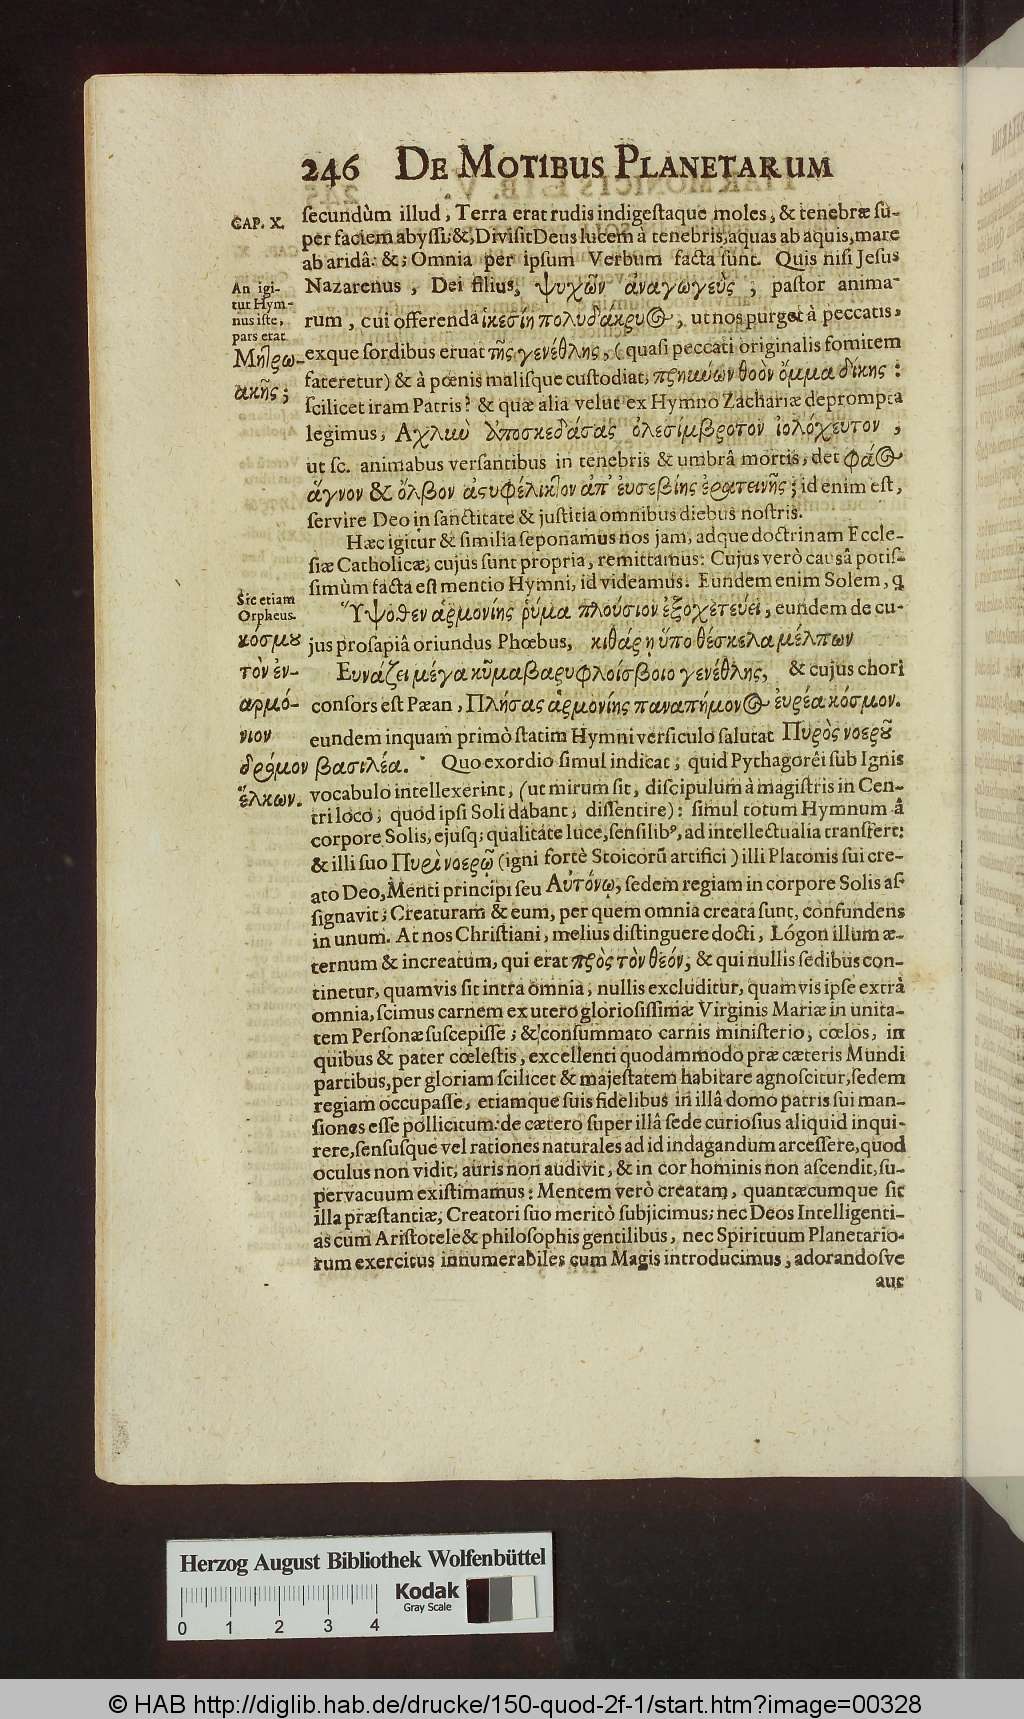 246 DE MOTIBUS PLANETARUM
CAP. X.
secundùm illud, Terra erat rudis indigestaque moles, & tenebræ su-
per faciem abyssi; &, Divisit Deus lucem à tenebris, aquas ab aquis, mare
ab aridâ: &; Omnia per ipsum Verbum facta sunt. Quis nisi Jesus
Nazarenus, Dei filius, ψυχῶν ἀναγωγεὺς, pastor anima-
rum, cui offerenda ἱκεσίη πολυδάκρυος, ut nos purget à peccatis,
exque sordibus eruat τῆς γενέθλης, (quasi peccati originalis fomitem
fateretur) & à pœnis malisque custodiat, πρηϋνων θοὸν ὄμμα δίκης:
scilicet iram Patris? & quæ alia velut ex Hymno Zachariæ deprompta
legimus, Αχλιὼ ἀποσκεδάσας ὀλεσίμβροτον ἰολόχευτον,
ut sc. animabus versantibus in tenebris & umbrâ mortis, det φάος
ἅγνον & ὄλβον ἀςυφέλικτον ἀπ' ἐυσεβίης ἐρατεινῆς; id enim est,
servire Deo in sanctitate & justitia omnibus diebus nostris.
Hæc igitur & similia seponamus nos jam, adque doctrinam Eccle-
siæ Catholicæ, cujus sunt propria, remittamus: Cujus verò causâ potis-
simùm facta est mentio Hymni, id videamus. Eundem enim Solem, q
Ὑψοθεν ἁρμονίης ῥύμα πλούσιον ἐξοχετεύει, eundem de cu-
jus prosapiâ oriundus Phœbus, κιθάρῃ ὕπο θέσκελα μέλπων
Ευνάζει μέγα κῦμα βαρυφλοίσβοιο γενέθλης, & cujus chori
consors est Pæan, Πλήσας ἁρμονίης παναπήμονος ἐυρέα κόσμον.
eundem inquam primò statim Hymni versiculo salutat Πυρὸς νοεροῦ
βασιλέα. Quo exordio simul indicat, quid Pythagorêi sub Ignis
vocabulo intellexerint, (ut mirum sit, discipulum à magistris in Cen-
tri loco, quod ipsi Soli dabant, dissentire): simul totum Hymnum â
corpore Solis, ejusq; qualitate luce, sensilibꝰ, ad intellectualia transfert:
& illi suo Πυρὶ νοερῷ (igni fortè Stoicorū artifici) illi Platonis sui cre-
ato Deo, Menti principi seu Αὐτόνῳ, sedem regiam in corpore Solis as-
signavit; Creaturam & eum, per quem omnia creata sunt, confundens
in unum. At nos Christiani, melius distinguere docti, Lógon illum æ-
ternum & increatum, qui erat πρὸς τὸν θεόν, & qui nullis sedibus con-
tinetur, quamvis sit intra omnia, nullis excluditur, quamvis ipse extrà
omnia, scimus carnem ex utero gloriosissimæ Virginis Mariæ in unita-
tem Personæ suscepisse; & consummato carnis ministerio, cœlos, in
quibus & pater cœlestis, excellenti quodammodo præ cæteris Mundi
partibus, per gloriam scilicet & majestatem habitare agnoscitur, sedem
regiam occupasse, etiamque suis fidelibus in illâ domo patris sui man-
siones esse pollicitum: de cætero super illâ sede curiosius aliquid inqui-
rere, sensusque vel rationes naturales ad id indagandum arcessere, quod
oculus non vidit, auris non audivit, & in cor hominis non ascendit, su-
pervacuum existimamus: Mentem verò creatam, quantæcumque sit
illa præstantiæ, Creatori suo meritò subjicimus; nec Deos Intelligenti-
as cum Aristotele & philosophis gentilibus, nec Spirituum Planetario-
rum exercitus innumerabiles cum Magis introducimus, adorandosve
aut
An igi-
tur Hym-
nus iste,
pars erat
Μητρω-
ακῆς;
Sic etiam
Orpheus.
κόσμȣ
τὸν ἐν-
αρμό-
νιον
δρόμον
ἕλκων.
Herzog August Bibliothek Wolfenbüttel
Kodak
Gray Scale
0 1 2 3 4
© HAB http://diglib.hab.de/drucke/150-quod-2f-1/start.htm?image=00328